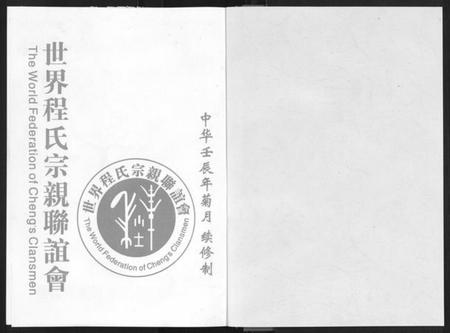 世界程氏宗親聯誼會
The World Federation of Cheng's Clansmen
世界程氏宗親聯誼會
The World Federation of Cheng's Clansmen
中华壬辰年菊月 续修制